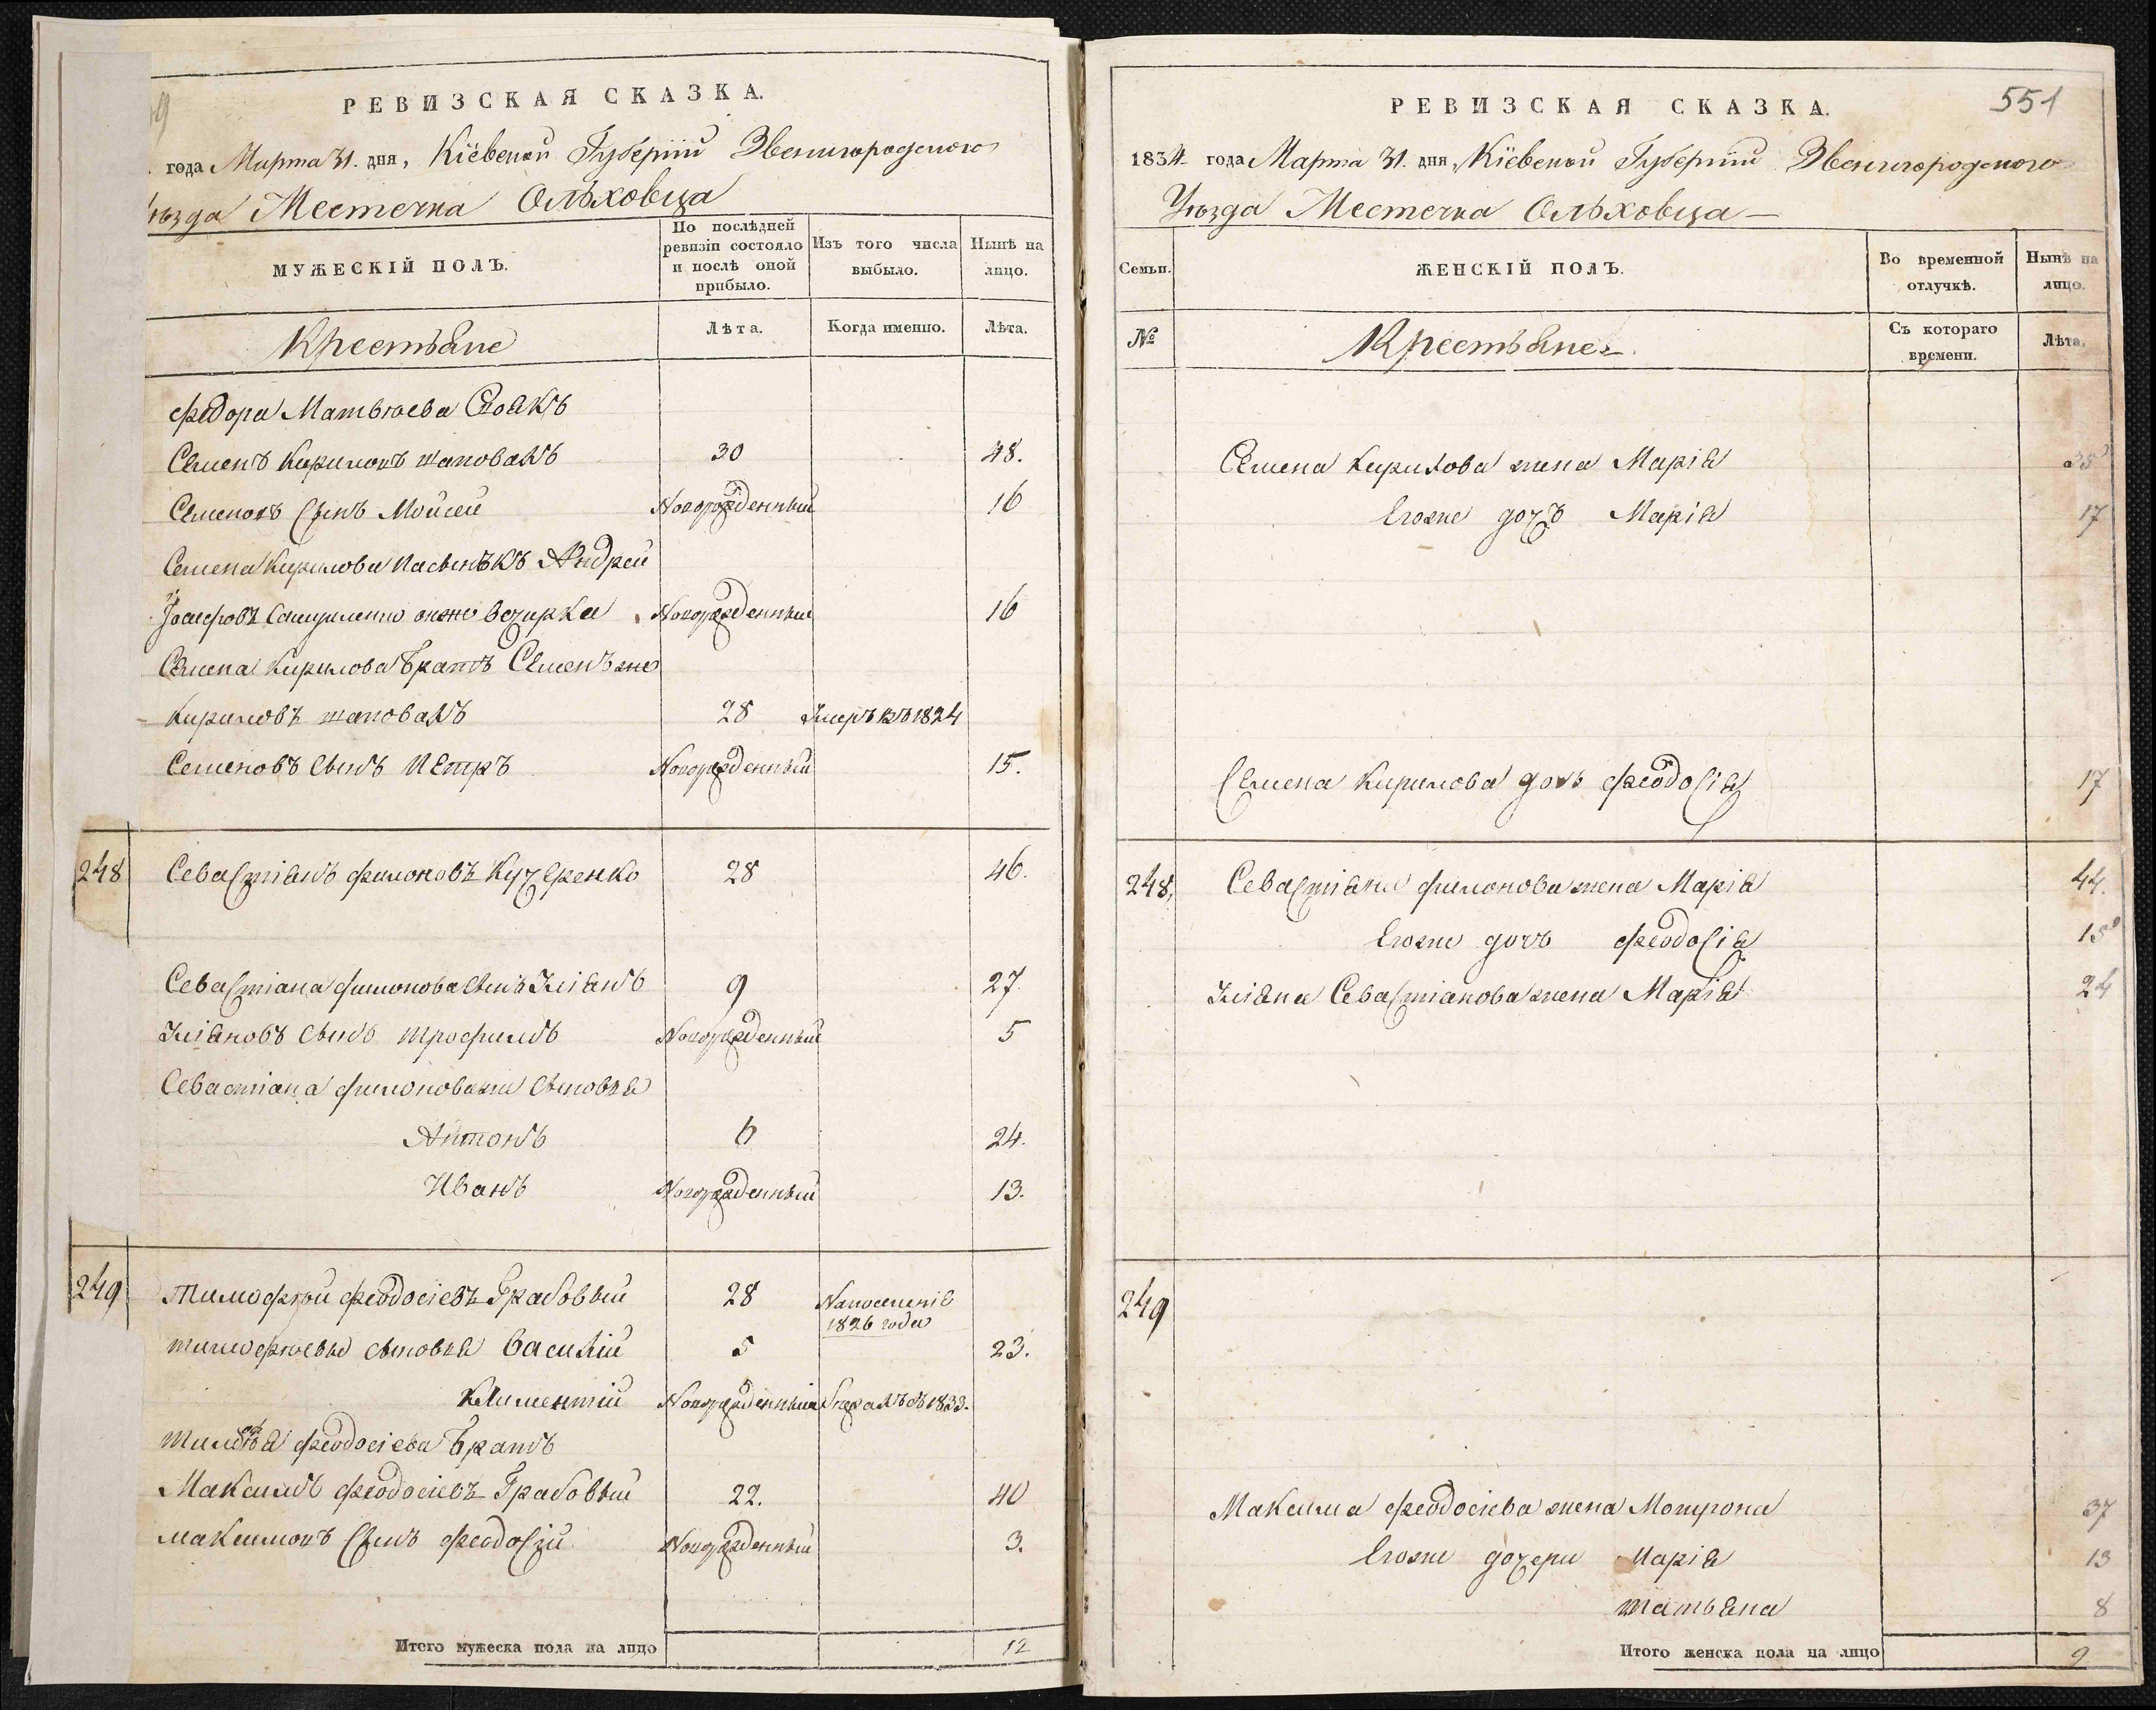 РЕВИЗСКАЯ СКАЗКА.
года Марта 31. дня, Кіевской Губерніи Звенигородского
уѣзда Местечка Ольховца
МУЖЕСКІЙ ПОЛЪ.
По послѣдней ревизіи состояло и послѣ оной прибыло.
Изъ того числа выбыло.
Нынѣ на лицо.
Крестьяне
Лѣта.
Когда именно.
Лѣта.
Федора Матвюева
Семенъ Кириловъ шаповалъ 30 48.
Семеновъ Сынъ Мойсей Новорожденный 16
Семена Кирилова пасынѣкъ Андрей
онже Вечирка Новорожденный 16
Семена Кирилова братъ Семенъ же
Кириловъ шаповалъ 28 Умеръ въ 1824
Семеновъ сынъ Петръ Новорожденный 15.
248 Севастіянъ Филоновъ Кучеренко 28 46.
Севастіана Филонова сынъ Уліянъ 9 27.
Уліяновъ сынъ трофимъ Новорожденный 5
Севастіана Филонова же сыновья
Антонъ 6 24.
Иванъ Новорожденный 13.
249 Тимофюй Феодосіевъ Грабовый 28 На поселеніе 1826 года
тимофюевы сыновья Василій 5 23.
Климентій Новорожденный въ 1833.
тимофѣя Феодосіева братъ
Максимъ Феодосіевъ Грабовый 22. 40
максимовъ Сынъ Феодосій Новорожденный 3.
Итого мужеска пола на лицо 12
551
РЕВИЗСКАЯ СКАЗКА.
1834 года Марта 31. дня, Кіевской Губерніи Звенигородского
Уюзда Местечка Ольховца
Семьи.
ЖЕНСКІЙ ПОЛЪ.
Во временной отлучкѣ.
Нынѣ на лицо.
№
Крестьяне
Съ котораго времени.
Лѣта.
Семена Кирилова жена Марія 35
Егоже дочъ Марія 17
Семена Кирилова дочь Феодосія 17
248, Севастіяна Филонова жена Марія 44.
Егоже дочь Феодосія 15
Уліяна Севастіанова жена Марія 24
249
Максима Феодосіева жена Мотрона 37
Егоже дочери Марія 13
татьяна 8
Итого женска пола на лицо 9